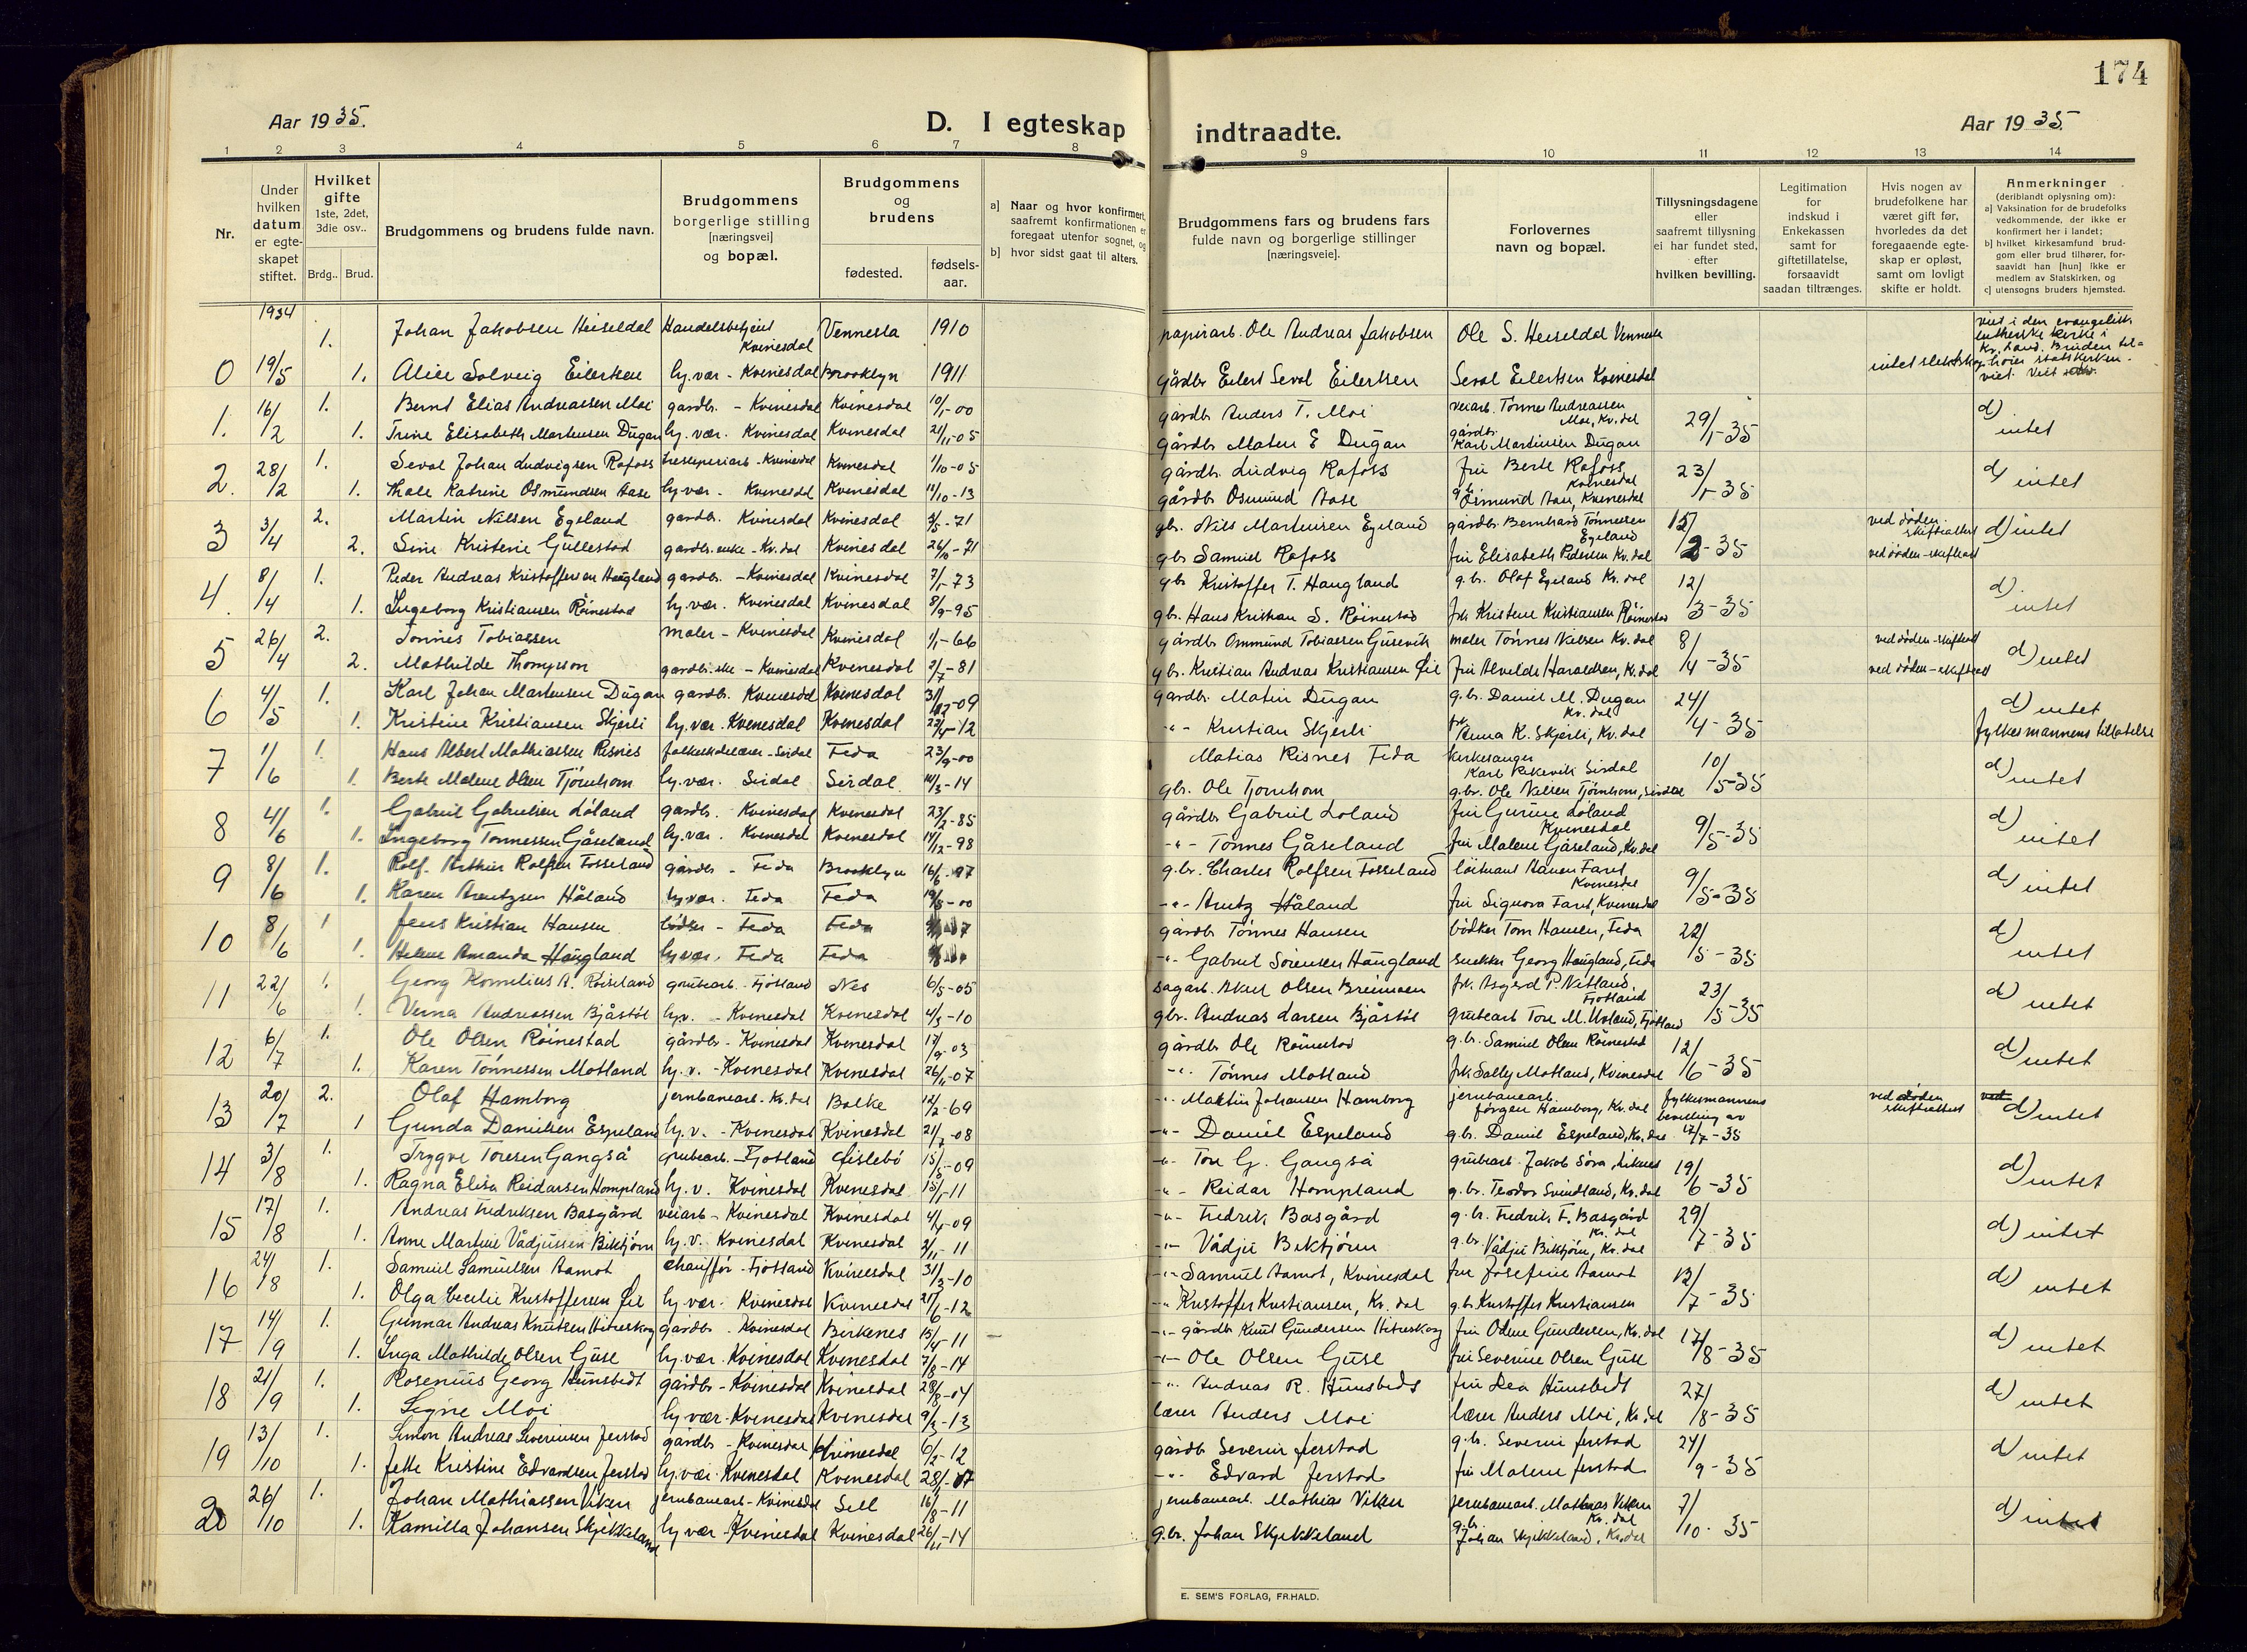 174
Aar 1935.
D. I egteskap indtraadte.
Aar 1935.
1 2 3 4 5 6 7 8 9 10 11 12 13 14
Nr.
Under hvilken datum er egteskapet stiftet.
Hvilket gifte 1ste, 2det, 3die osv..
Brdg.. Brud.
Brudgommens og brudens fulde navn.
Brudgommens borgerlige stilling [næringsvei] og bopæl.
Brudgommens og brudens
fødested.
fødsels-aar.
a] Naar og hvor konfirmert, saafremt konfirmationen er foregaat utenfor sognet, og
b] hvor sidst gaat til alters.
Brudgommens fars og brudens fars fulde navn og borgerlige stillinger [næringsveie].
Forlovernes navn og bopæl.
Tillysningsdagene eller saafremt tillysning ei har fundet sted, efter hvilken bevilling.
Legitimation for indskud i Enkekassen samt for giftetillatelse, forsaavidt saadan tiltrænges.
Hvis nogen av brudefolkene har været gift før, hvorledes da det foregaaende egteskap er opløst, samt om lovligt skifte er holdt.
Anmerkninger (deriblandt oplysning om): a] Vaksination for de brudefolks vedkommende, der ikke er konfirmert her i landet; b] hvilket kirkesamfund brudgom eller brud tilhører, forsaavidt han [hun] ikke er medlem av Statskirken, og c] utensogns bruders hjemsted.
1934
1. Johan Jakobsen Heiseldal Handelsbetjent Kvinesdal Vennesla 1910 papirarb. Ole Andreas Jakobsen Ole S. Heiseldal Vennesla viet i den evangelisk lutherske kirke i
0 19/5 1. Alice Solveig Eilertsen hj.vær - Kvinesdal Brooklyn 1911 gårdbr Eilert Seval Eilertsen Seval Eilertsen Kvinesdal intet slektskap
1. 16/2 1. Bernt Elias Andreassen Moi gardbr. - Kvinesdal Kvinesdal 10/1-00 gårdbr Anders T. Moi veiarb. Tønnes Andreassen Moi, Kv.dal 29/1-35 d) intet
1. Trine Elisabeth Martensen Dugan hj.vær. Kvinesdal Kvinesdal 21/11-05 gårdbr Maten E Dugan gårdbr. Karl Martinsen Dugan
2. 28/2 1. Seval Johan Ludvigsen Rafoss Kvinesdal Kvinesdal 1/10-05 gårdbr. Ludvig Rafoss fru Berte Rafoss Kvinesdal 23/1-35 d) intet
1. Thale Katrine Osmundsen Aase hj.vær - Kvinesdal Kvinesdal 11/10-13 gårdbr Osmund Aase gbr. Osmund Aase, Kvinesdal
3 3/4 2. Martin Nilsen Egeland gardbr. Kvinesdal Kvinesdal 2/5-71 gbr. Nils Martinsen Egeland gårdbr. Bernhard Tønnessen Egeland 15/2-35 ved døden skifteattest d) intet
2. Sine Kristine Gullestad gardbr.enke - Kv.dal Kvinesdal 26/10-71 gbr Samuel Rafoss fru Elisabeth Pedersen Kv.dal ved døden - skifteatt
4. 8/4 1. Peder Andreas Kristoffersen Haugland gardbr. - Kvinesdal Kvinesdal 7/1-73 gbr Kristoffer T. Haugland g.br. Olaf Egeland Kv.dal 12/3-35 d) intet
1. Ingeborg Kristiansen Røinestad hj.vær. Kvinesdal Kvinesdal 8/9-95 gbr. Hans Kristian S. Røinestad frk Kristine Kristiansen Røinestad
5 26/4 2. Tønnes Tobiassen maler - Kvinesdal Kvinesdal 1/1-66 gårdbr Ommund Tobiassen Gusevik maler Tønnes Nilsen Kv.dal 8/4-35 ved døden - skifteatt d) intet
2. Mathilde Thompson gardbr.ske - Kvinesdal Kvinesdal 2/7-81 gbr. Kristian Andreas Kristiansen Øie fru Alvilde Haraldsen, Kv.dal ved døden - skifteatt
6 4/5 1. Karl Johan Martensen Dugan gardbr. Kvinesdal Kvinesdal 31/12-09 gardbr. Matin Dugan g.br. Daniel M. Dugan Kv.dal 24/4-35 d) intet
1. Kristine Kristiansen Skjerli hj.vær. Kvinesdal Kvinesdal 22/4-12 -"- Kristian Skjerli frk Anna K. Skjerli, Kv.dal fylkesmannens tillatelse
7 1/6 1. Hans Albert Mathiassen Risnes folkeskolelærer - Sirdal Feda 23/9-00 Matias Risnes Feda kirkesanger Karl Sirdal 10/5-35 d) intet
1. Berte Malene Olsen Tjørnhom hj.vær. Sirdal Sirdal 14/3-14 gbr. Ole Tjørnhom g.br. Ole Nilsen Tjørnhom, Sirdal
8 4/6 1. Gabriel Gabrielsen Løland gardbr. Kvinesdal Kvinesdal 23/2-85 gårdbr Gabriel Løland fru Gurine Løland Kvinesdal 9/5-35 d) intet
1. Ingeborg Tønnessen Gåseland hj.vær. Kvinesdal Kvinesdal 14/12-98 -"- Tønnes Gåseland fru Malene Gåseland, Kv.dal
9 8/6 1. Rolf Arthur Rolfsen Fosseland gårdbr - Feda Brooklyn 16/6-97 g.br. Charles Rolfsen Fosseland løitnant Hanen Faret Kvinesdal 9/5-35 d) intet
1. Karen Arentzsen Håland hj.vær. Feda Feda 19/8-00 -"- Arntz Håland fru Signora Faret, Kvinesdal
10 8/6 1 Jens Kristian Hansen bødker - Feda Feda gårdbr Tønnes Hansen bødker Tom Hansen, Feda 22/5-35 d) intet
1. Helene Amanda Haugland hj.vær. Feda Feda -"- Gabriel Sørensen Haugland snekker Georg Haugland, Feda
11 22/6 1. Georg Kornelius A. Røiseland grubearb. - Fjotland Nes 6/5-05 sagarb. Aksel Olsen Breimoen frk. Asgerd P. Netland, Fjotland 23/5-35 d) intet
1. Verna Andreassen Bjåstøl hj.v. - Kvinesdal Kvinesdal 4/3-10 gbr. Andreas Larsen Bjåstøl grubearb Tore M. Urland, Fjotland
12 6/7 1. Ole Olsen Røinestad gårdbr - Kvinesdal Kvinesdal 17/9-03 gårdbr Ole Røinestad g.br. Samuel Olsen Røinestad 12/6-35 d) intet
1. Karen Tønnessen Motland hj.v. - Kvinesdal Kvinesdal 26/11-07 -"- Tønnes Motland frk Sally Motland, Kvinesdal
13 20/7 2. Olaf Hamborg jernbanearb. Kv.dal Bolke 12/2-69 -"- Martin Johansen Hamborg jernbanearb. Jørgen Hamborg, Kv.dal fylkesmannens bevilling av 17/7-35 ved døden skifteattest d) intet
1 Gunda Danielsen Espeland hj.v. - Kvinesdal Kvinesdal 21/7-08 -"- Daniel Espeland g.br. Daniel Espeland, Kv.dal
14 3/8 1. Trygve Toresen Gangså grubearb. - Fjotland Øislebø 15/5-09 -"- Tore G. Gangså grubearb. Jakob Søra, Liknes 19/6-35 d) intet
1. Ragna Elisa Reidarsen Hompland hj.v. Kvinesdal Kvinesdal 15/1-11 -"- Reidar Hompland g.br. Teodor Svindland, Kv.dal
15 17/8 1. Andreas Fredriksen Basgård veiarb - Kvinesdal Kvinesdal 4/4-09 -"- Fredrik Basgård g.br. Fredrik F. Basgård Kv.dal 29/7-35 d) intet
1. Anne Martine Vådjussen Biktjørn hj.v. Kvinesdal Kvinesdal 3/11-11 -"- Vådju Biktjørn g.br. Vådju Biktjørn, Kv.dal
16 24/8 1. Samuel Samuelsen Aamot chauffør - Fjotland Kvinesdal 31/3-10 -"- Samuel Aamot, Kvinesdal fru Josefine Aamot 12/7-35 d) intet
1. Olga Cecilie Kristoffersen Øie hj.vær. Kvinesdal Kvinesdal 21/6-12 -"- Kristoffer Kristiansen, Kv.dal g.br Kristoffer Kristiansen
17 14/9 1. Gunnar Andreas Knutsen Hitreskog gårdbr. Kvinesdal Birkenes 15/4-11 -"- gårdb Knut Gundersen Hitreskog fru Odene Gundersen, Kv.dal 17/8-35 d) intet
1. Inga Mathilde Olsen Guse hj.vær. Kvinesdal Kvinesdal 7/8-14 -"- Ole Olsen Guse fru Severine Olsen Guse
18 21/9 1. Rosenius Georg Hunsbedt gårdbr - Kvinesdal Kvinesdal 28/8-04 -"- Andreas R. Hunsbedt fru Lea Hunsbedt 27/8-35 d) intet
1. Signe Moi hj.vær - Kvinesdal Kvinesdal 9/3-13 lærer Anders Moi lærer Anders Moi, Kv.dal
19 13/10 1. Simon Andreas Severinsen Jerstad gårdbr - Kvinesdal Kvinesdal 6/2-12 gårdb Severin Jerstad g.br. Severin Jerstad 24/9-35 d) intet
1. Jette Kristine Edvardsen Jerstad hj.vær. Kvinesdal Kvinesdal 28/1-07 -"- Edvard Jerstad fru Malene Jerstad
20 26/10 1. Johan Mathiassen Viken jernbanearb - Kvinesdal Sell 16/8-11 jernbanearb. Mathias Viken jernbanearb. Mathias Viken Kv.dal 7/10-35 d) intet
1. Kamilla Johansen Skjekkeland hj.vær - Kvinesdal Kvinesdal 26/11-14 g.br. Johan Skjekkeland g.br. Johan Skjekkeland, Kv.dal
E. SEM'S FORLAG, FR.HALD.